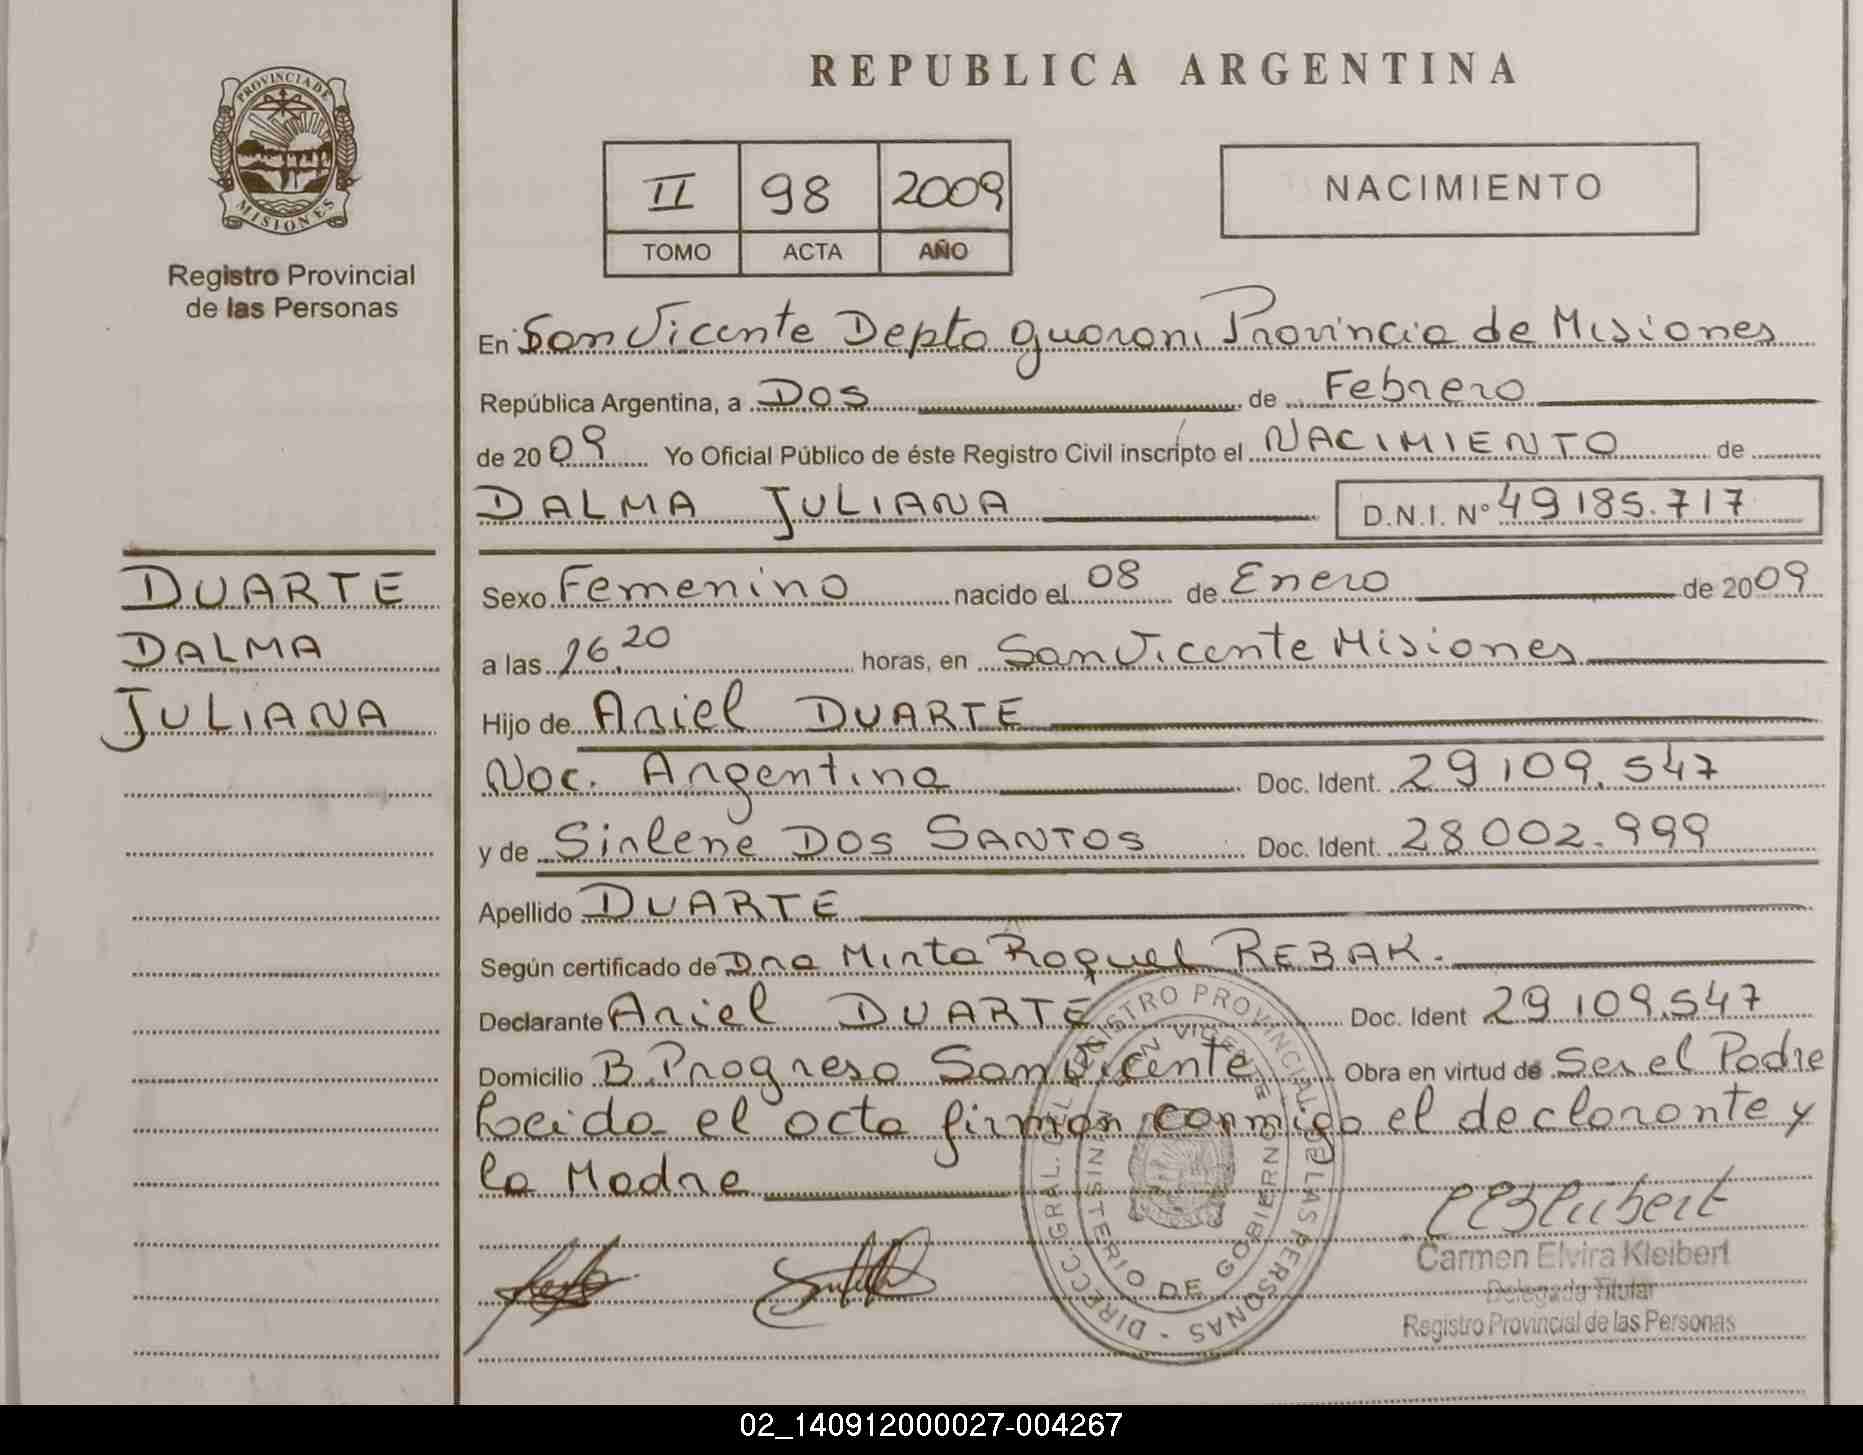 REPUBLICA ARGENTINA
PROVINCIA DE
MISIONES
Registro Provincial
de las Personas
II 98 2009
TOMO ACTA AÑO
NACIMIENTO
En San Vicente Depto guarani Provincia de Misiones
República Argentina, a Dos de Febrero
de 2009 Yo Oficial Público de éste Registro Civil inscripto el NACIMIENTO de
DALMA JULIANA D.N.I. Nº 49185.717
DUARTE
DALMA
JULIANA
Sexo Femenino nacido el 08 de Enero de 2009
a las 16.20 horas, en San Vicente Misiones
Hijo de Ariel DUARTE
Nac. Argentina Doc. Ident. 29109.547
y de Sirlene DOS SANTOS Doc. Ident. 28002.999
Apellido DUARTE
Según certificado de Dra Mirta Raquel REBAK.
Declarante Ariel DUARTE Doc. Ident 29109.547
Domicilio B. Progreso San Vicente Obra en virtud de Ser el Padre
Leida el acta firman conmigo el declarante y
la Madre
DIRECC. GRAL. DEL REGISTRO PROVINCIAL DE LAS PERSONAS -
SAN VICENTE
MINISTERIO DE GOBIERNO
Carmen Elvira Kleibert
Delegada Titular
Registro Provincial de las Personas
02_140912000027-004267